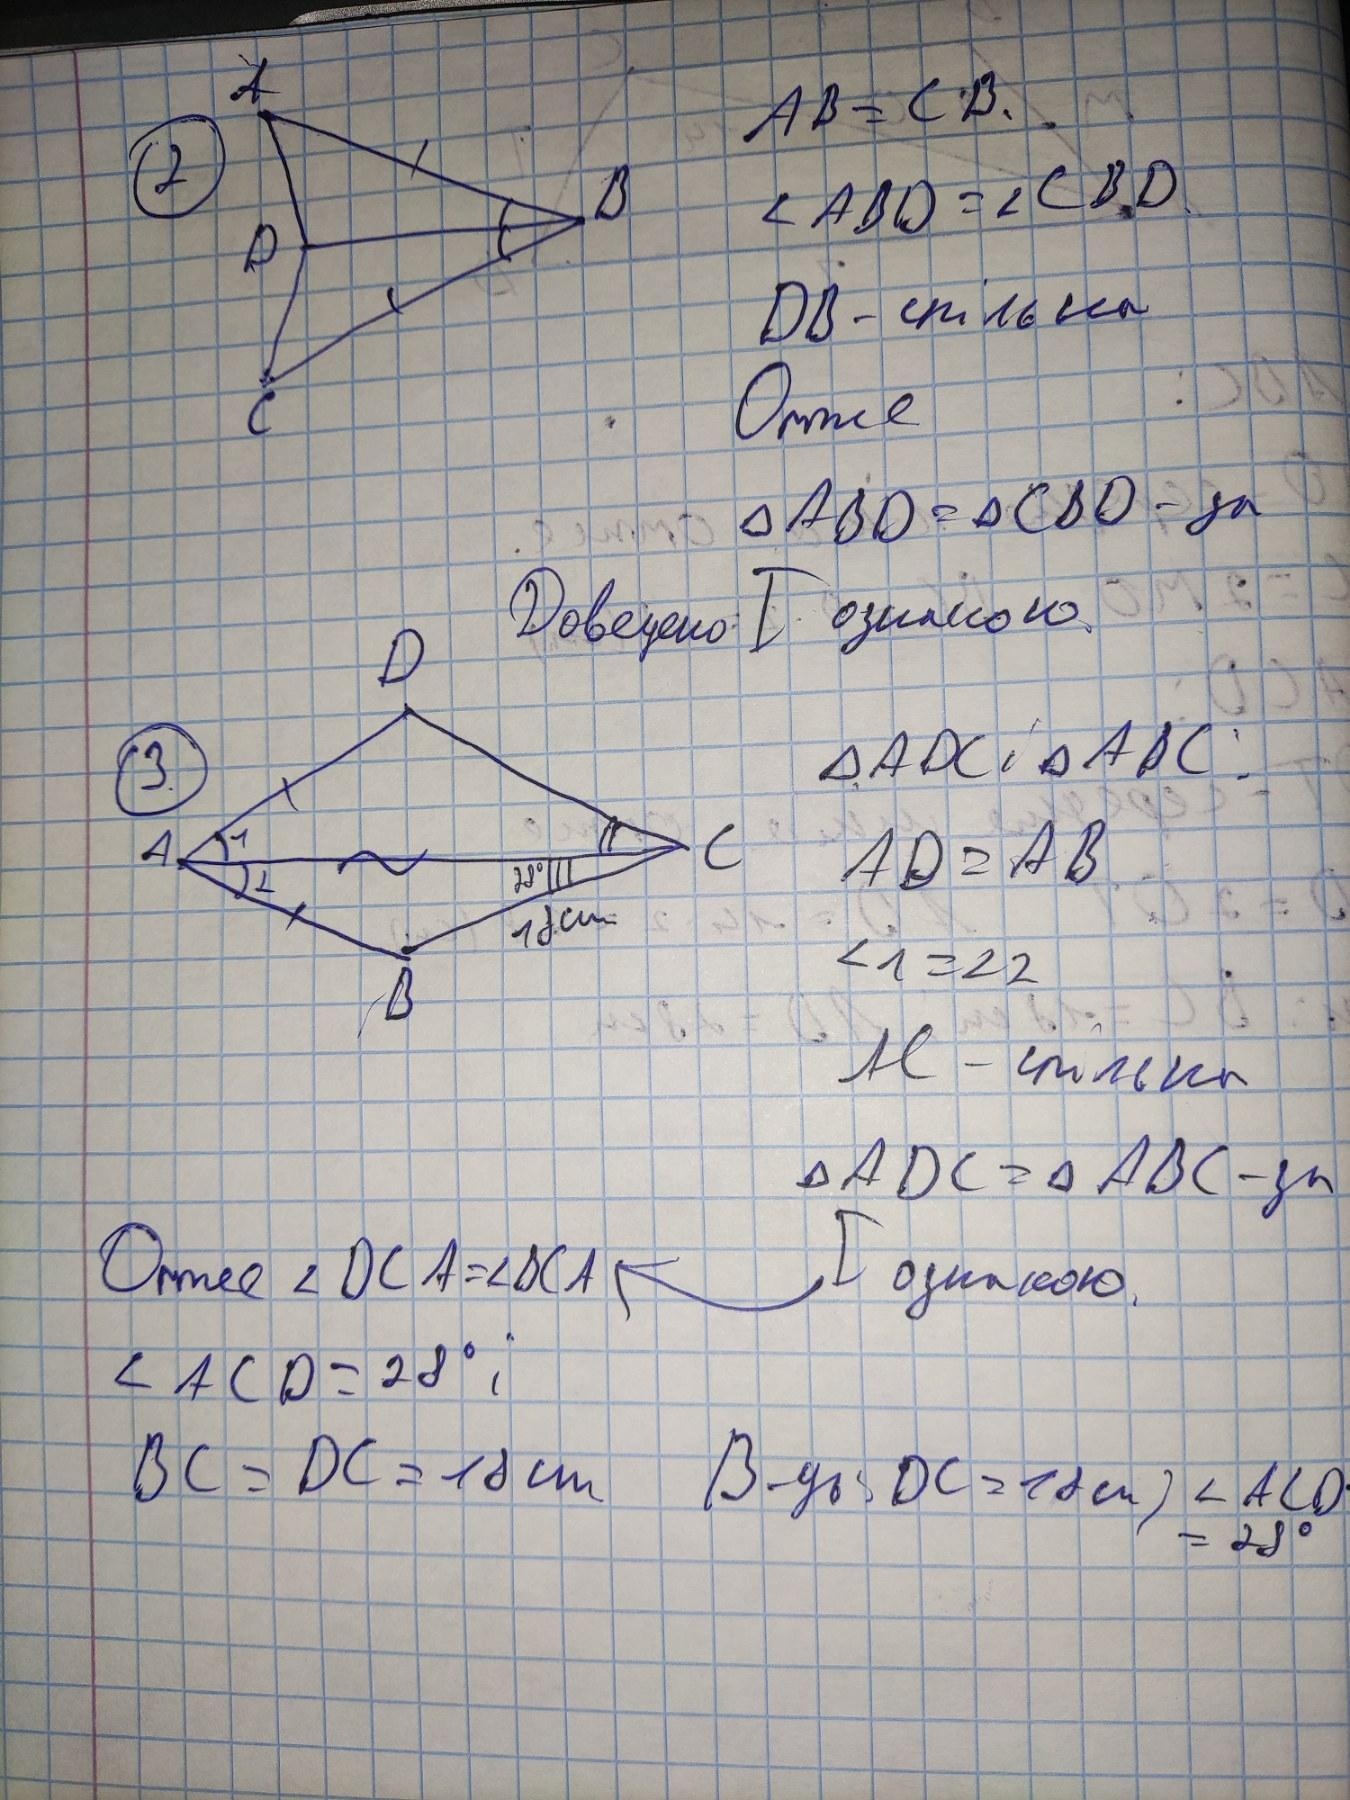 2
A
B
D
C
AB = CB.
∠ABD = ∠CBD.
DB - спільна
Отже
△ABD = △CBD - за
Доведено. I ознакою.
3.
D
A
1
2
28°
C
18 cm
B
△ADC і △ABC:
AD = AB
∠1 = ∠2
AC - спільна
△ADC = △ABC - за
I ознакою.
Отже ∠DCA = ∠BCA
∠ACD = 28° і
BC = DC = 18 cm
В-дь: DC = 18 cm; ∠ACD
= 28°